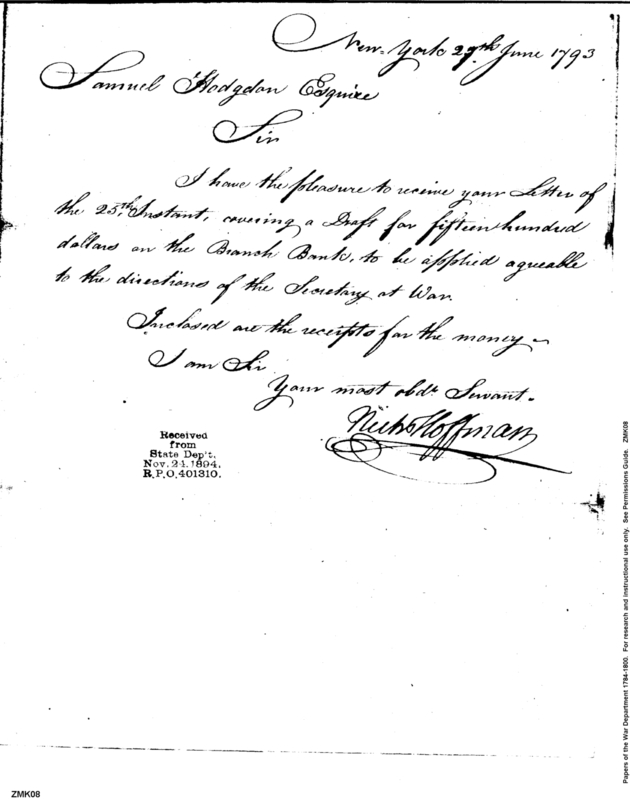 New-York 29th June 1793
Samuel Hodgdon Esquire
Sir
I have the pleasure to receive your Letter of
the 25th Instant, covering a Draft for fifteen hundred
dollars on the Branch Bank, to be applied agreable
to the directions of the Secretary at War.
Inclosed are the receipts for the money –
I am Sir
Your most obdt Servant.
Nichs Hoffman
Received
from
State Dep't.
Nov. 24. 1894.
R.P.O. 401310.
ZMK08
Papers of the War Department 1784-1800. For research and instructional use only. See Permissions Guide. ZMK08